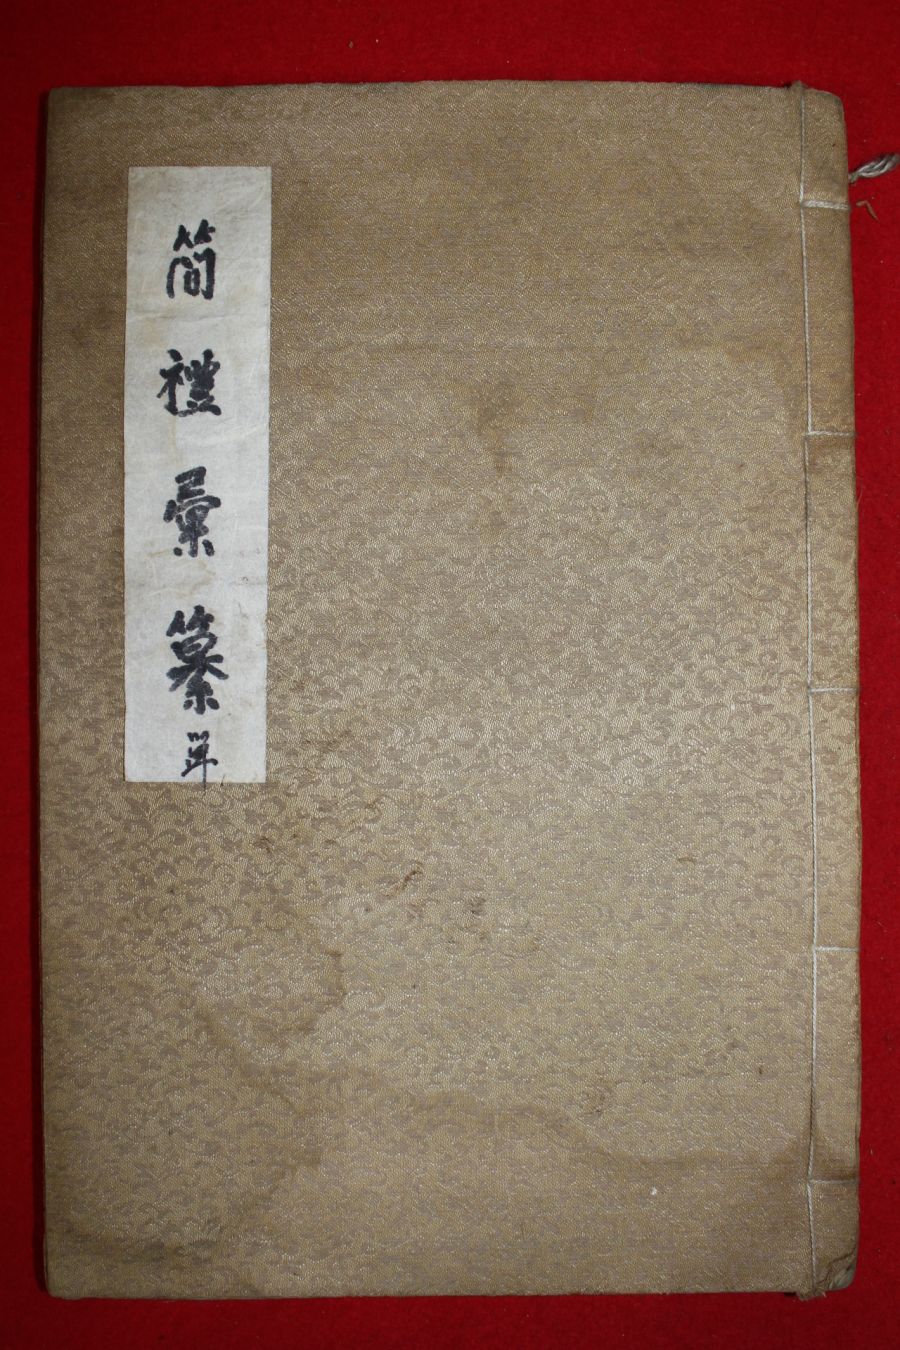 簡禮彙纂單